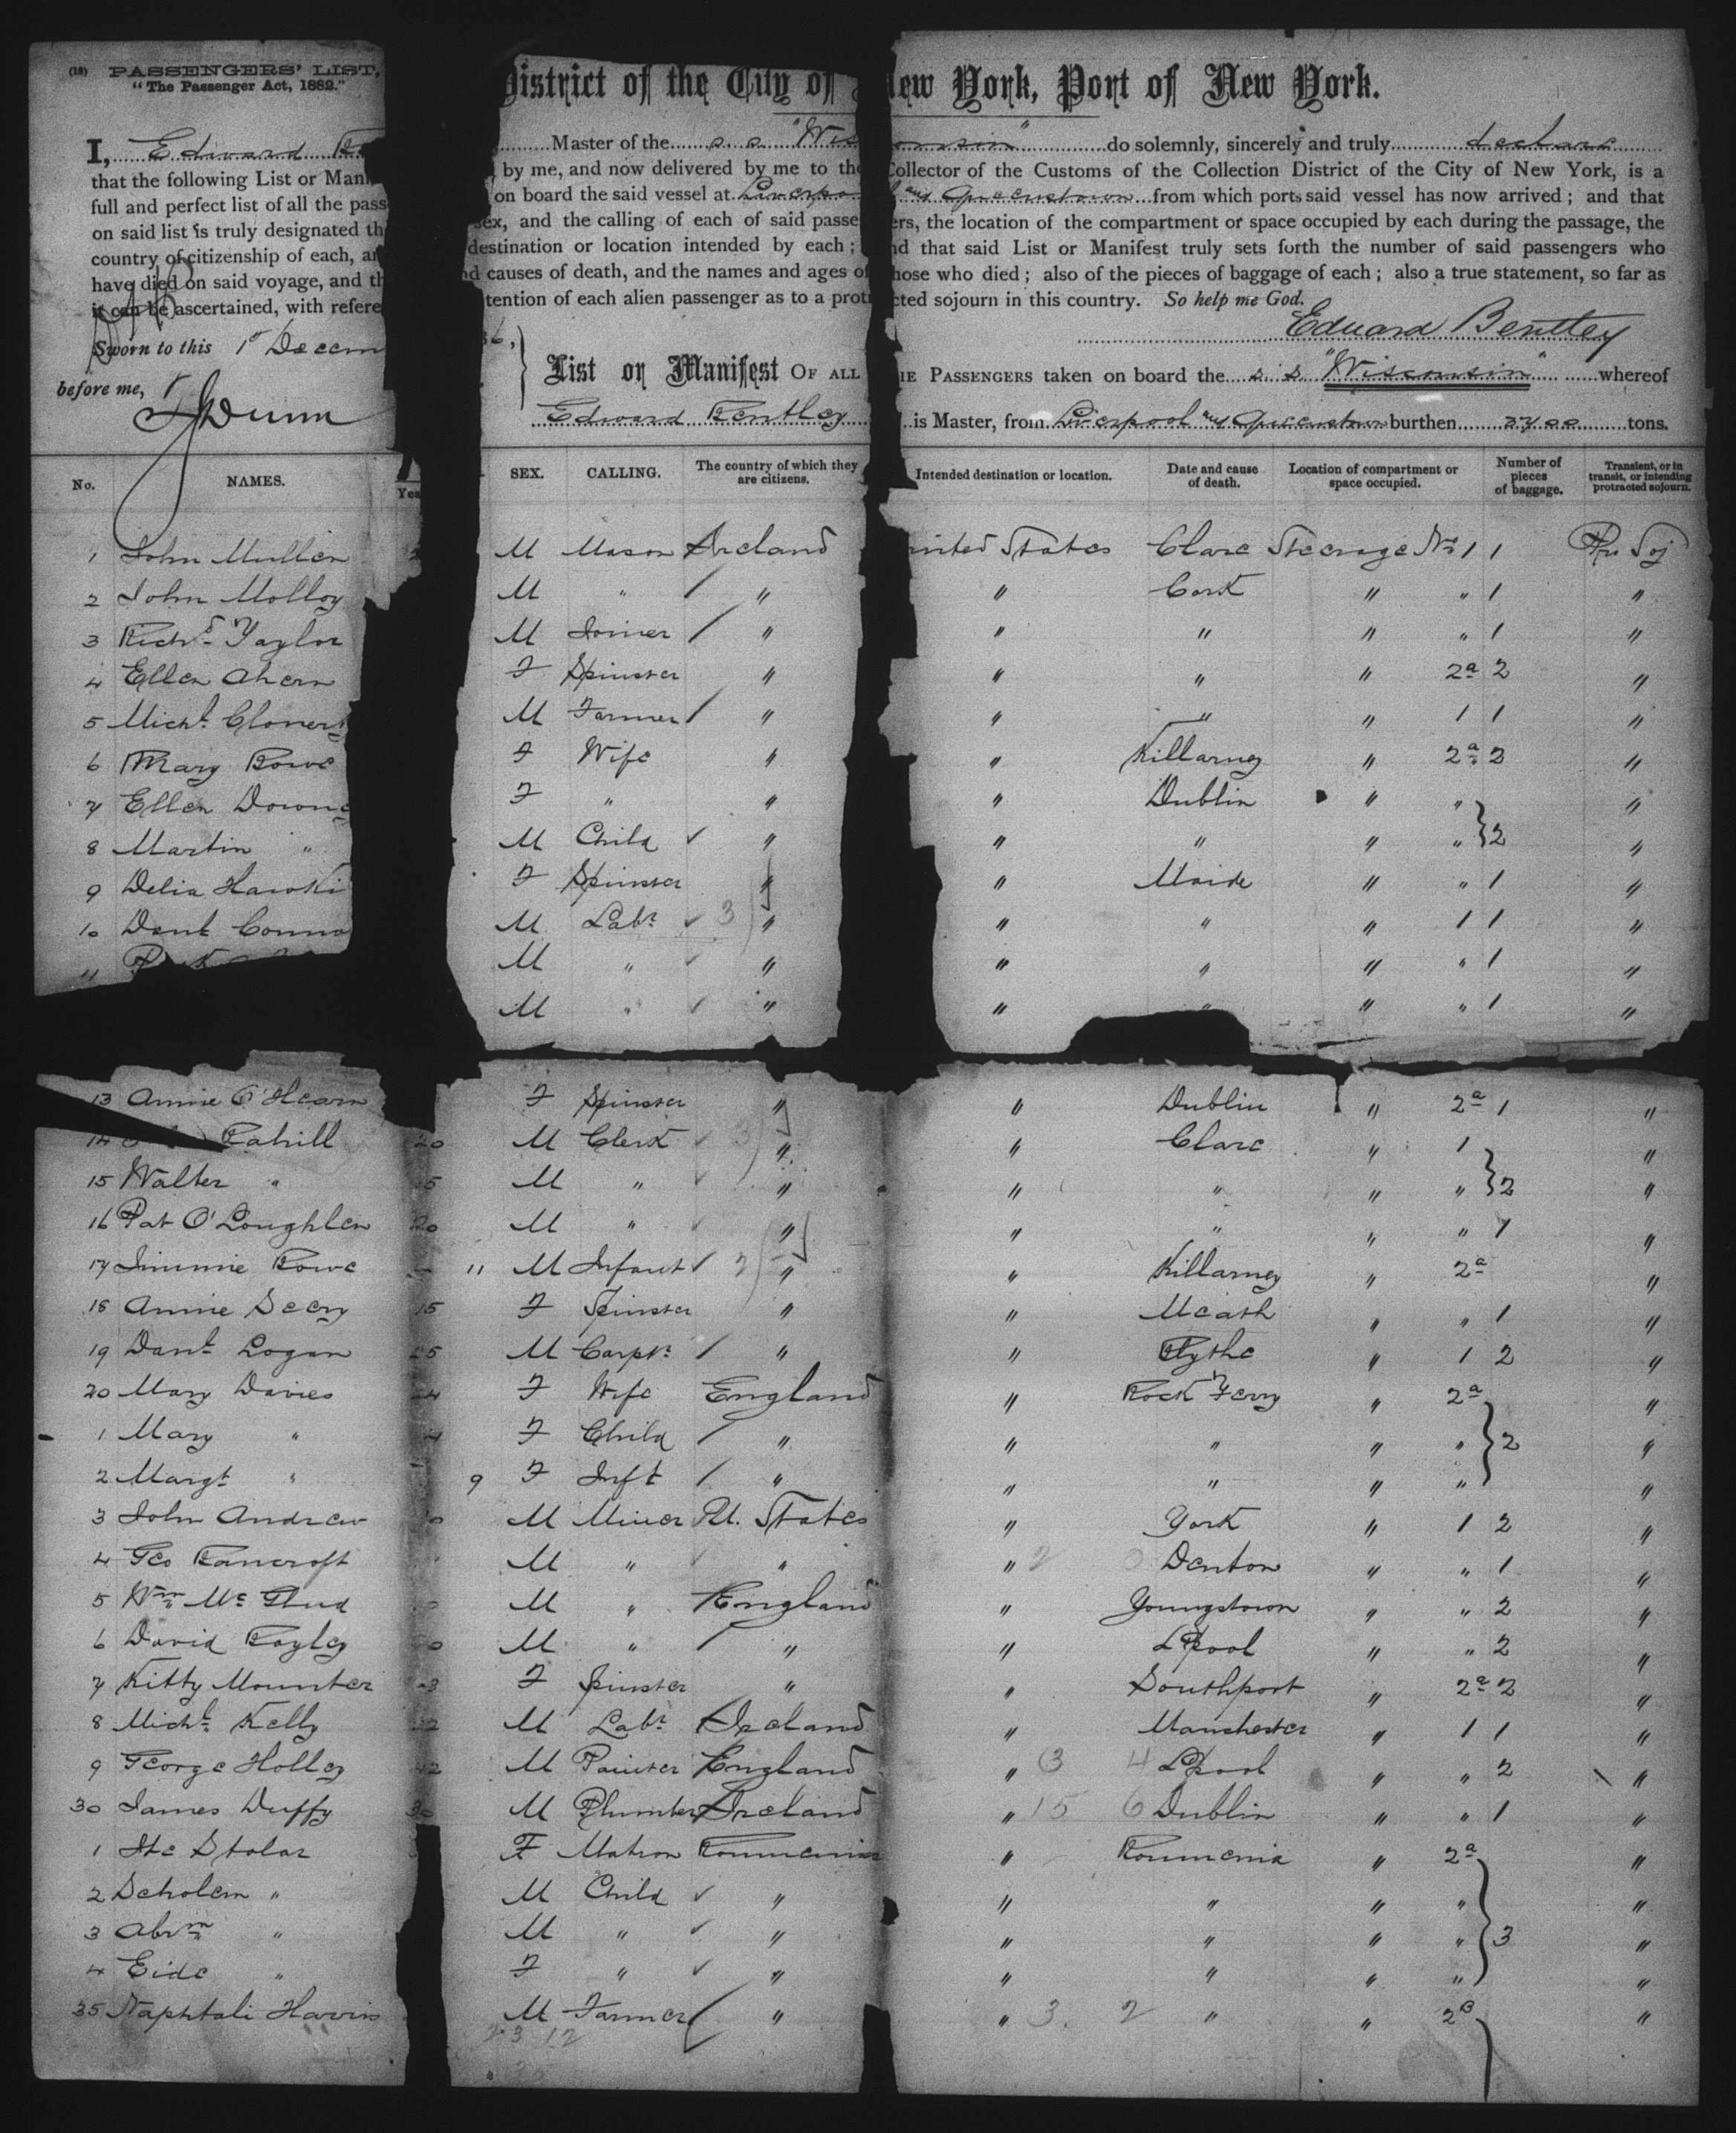 (18) PASSENGERS' LIST,
"The Passenger Act, 1882."
District of the City of New York, Port of New York.
I, Edward Master of the s.s. "Wisconsin" do solemnly, sincerely and truly declare
that the following List or by me, and now delivered by me to the Collector of the Customs of the Collection District of the City of New York, is a
full and perfect list of all the on board the said vessel at Liverpool and Queenstown from which ports said vessel has now arrived; and that
on said list is truly designated sex, and the calling of each of said passengers, the location of the compartment or space occupied by each during the passage, the
country of citizenship of each, destination or location intended by each; and that said List or Manifest truly sets forth the number of said passengers who
have died on said voyage, and and causes of death, and the names and ages of those who died; also of the pieces of baggage of each; also a true statement, so far as
it can be ascertained, with of each alien passenger as to a sojourn in this country. So help me God.
Edward Bentley
Sworn to this 1st 86,
before me, JDunn
List or Manifest OF ALL PASSENGERS taken on board the s.s. "Wisconsin" whereof
Edward Bentley is Master, from Liverpool and Queenstown burthen 3700 tons.
No. NAMES. SEX. CALLING. The country of which they are citizens. Intended destination or location. Date and cause of death. Location of compartment or space occupied. Number of pieces of baggage. Transient, or in transit, or intending protracted sojourn.
1 John Mullen M Mason Ireland States Clare Steerage No 1 1 Pro Soj
2 John Molloy M " " " Cork " " 1 "
3 Richd Taylor M Joiner " " " " " 1 "
4 Ellen Ahern F Spinster " " " " 2a 2 "
5 Michl M Farmer " " " " 1 1 "
6 Mary Rowe F Wife " " Killarney " 2a 2 "
7 Ellen F " " " Dublin " " "
8 Martin " M Child " " " " " 2 "
9 Delia F Spinster " " " " 1 "
10 M Labr 3 " " " " 1 1 "
11 M " " " " " " 1 "
M " " " " " " 1 "
13 Annie O'Hearn F Spinster " " Dublin " 2a 1 "
14 Cahill 20 M Clerk 3 " " Clare " 1 "
15 Walter " M " " " " " " 2 "
16 Pat O'Loughlen 20 M " " " " " " 1 "
17 Jimmie Rowe 11 M Infant 2 " " Killarney " 2a "
18 Annie Seery 15 F Spinster " " Meath " " 1 "
19 Danl Logan 25 M Carptr " " Blythe " 1 2 "
20 Mary Davies 24 F Wife England " Rock Ferry " 2a "
1 Mary " 4 F Child " " " " " 2 "
2 Margt " 9 F Inft " " " " " "
3 John Andrew M Miner U. States " York " 1 2 "
4 Geo Bancroft M " " " Denton " " 1 "
5 Wm M " England " Youngstown " " 2 "
6 David Bayley M " " " L'Pool " " 2 "
7 Kitty Mounter F Spinster " " Southport " 2a 2 "
8 Michl Kelly 22 M Labr Ireland " Manchester " 1 1 "
9 George Holley 42 M Painter England " L'Pool " " 2 "
30 James Duffy 30 M Plumber Ireland " 15 6 Dublin " " 1 "
1 Ite Stolar F Matron Roumenia " Roumenia " 2a "
2 Scholem " M Child " " " " " "
3 Abrm " M " " " " " " 3 "
4 Eide " F " " " " " " "
35 Naphtali M Farmer " " 3. 2 " " 2B "